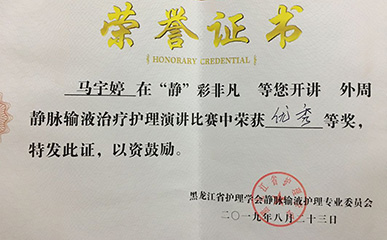 荣誉证书
HONORARY CREDENTIAL
马宇婷 在“静”彩非凡 等您开讲 外周
静脉输液治疗护理演讲比赛中荣获 优秀 等奖，
特发此证，以资鼓励。
黑龙江省护理学会静脉输液护理专业委员会
二〇一九年八月二十三日